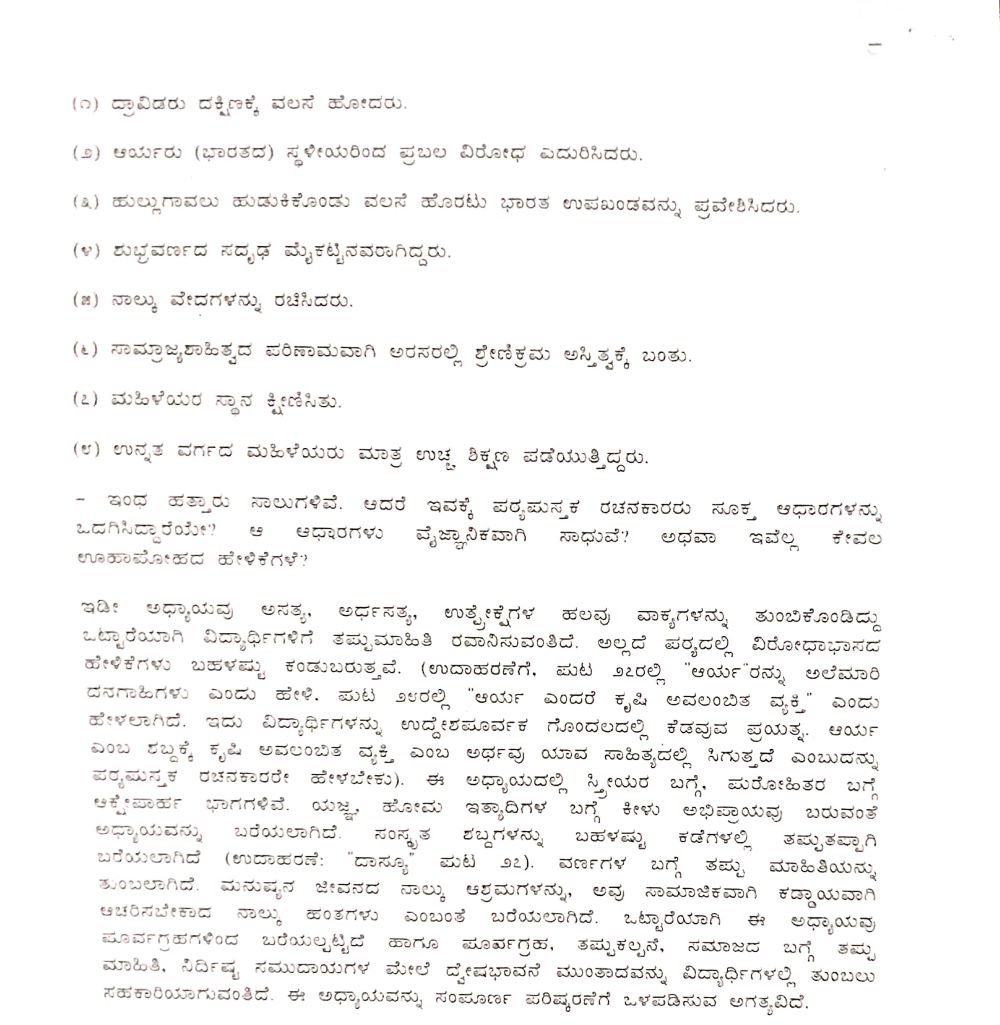 (೧) ದ್ರಾವಿಡರು ದಕ್ಷಿಣಕ್ಕೆ ವಲಸೆ ಹೋದರು.
(೨) ಆರ್ಯರು (ಭಾರತದ) ಸ್ಥಳೀಯರಿಂದ ಪ್ರಬಲ ವಿರೋಧ ಎದುರಿಸಿದರು.
(೩) ಹುಲ್ಲುಗಾವಲು ಹುಡುಕಿಕೊಂಡು ವಲಸೆ ಹೊರಟು ಭಾರತ ಉಪಖಂಡವನ್ನು ಪ್ರವೇಶಿಸಿದರು.
(೪) ಶುಭ್ರವರ್ಣದ ಸದೃಢ ಮೈಕಟ್ಟಿನವರಾಗಿದ್ದರು.
(೫) ನಾಲ್ಕು ವೇದಗಳನ್ನು ರಚಿಸಿದರು.
(೬) ಸಾಮ್ರಾಜ್ಯಶಾಹಿತ್ವದ ಪರಿಣಾಮವಾಗಿ ಅರಸರಲ್ಲಿ ಶ್ರೇಣಿಕ್ರಮ ಅಸ್ತಿತ್ವಕ್ಕೆ ಬಂತು.
(೭) ಮಹಿಳೆಯರ ಸ್ಥಾನ ಕ್ಷೀಣಿಸಿತು.
(೮) ಉನ್ನತ ವರ್ಗದ ಮಹಿಳೆಯರು ಮಾತ್ರ ಉಚ್ಚ ಶಿಕ್ಷಣ ಪಡೆಯುತ್ತಿದ್ದರು.
– ಇಂಥ ಹತ್ತಾರು ಸಾಲುಗಳಿವೆ. ಆದರೆ ಇವಕ್ಕೆ ಪಠ್ಯಪುಸ್ತಕ ರಚನಕಾರರು ಸೂಕ್ತ ಆಧಾರಗಳನ್ನು
ಒದಗಿಸಿದ್ದಾರೆಯೇ? ಆ ಆಧಾರಗಳು ವೈಜ್ಞಾನಿಕವಾಗಿ ಸಾಧುವೆ? ಅಥವಾ ಇವೆಲ್ಲ ಕೇವಲ
ಊಹಾಪೋಹದ ಹೇಳಿಕೆಗಳೆ?
ಇಡೀ ಅಧ್ಯಾಯವು ಅಸತ್ಯ, ಅರ್ಧಸತ್ಯ, ಉತ್ಪ್ರೇಕ್ಷೆಗಳ ಹಲವು ವಾಕ್ಯಗಳನ್ನು ತುಂಬಿಕೊಂಡಿದ್ದು
ಒಟ್ಟಾರೆಯಾಗಿ ವಿದ್ಯಾರ್ಥಿಗಳಿಗೆ ತಪ್ಪುಮಾಹಿತಿ ರವಾನಿಸುವಂತಿದೆ. ಅಲ್ಲದೆ ಪಠ್ಯದಲ್ಲಿ ವಿರೋಧಾಭಾಸದ
ಹೇಳಿಕೆಗಳು ಬಹಳಷ್ಟು ಕಂಡುಬರುತ್ತವೆ. (ಉದಾಹರಣೆಗೆ, ಪುಟ ೨೭ರಲ್ಲಿ "ಆರ್ಯ"ರನ್ನು ಅಲೆಮಾರಿ
ದನಗಾಹಿಗಳು ಎಂದು ಹೇಳಿ, ಪುಟ ೨೮ರಲ್ಲಿ "ಆರ್ಯ ಎಂದರೆ ಕೃಷಿ ಅವಲಂಬಿತ ವ್ಯಕ್ತಿ" ಎಂದು
ಹೇಳಲಾಗಿದೆ. ಇದು ವಿದ್ಯಾರ್ಥಿಗಳನ್ನು ಉದ್ದೇಶಪೂರ್ವಕ ಗೊಂದಲದಲ್ಲಿ ಕೆಡವುವ ಪ್ರಯತ್ನ. ಆರ್ಯ
ಎಂಬ ಶಬ್ದಕ್ಕೆ ಕೃಷಿ ಅವಲಂಬಿತ ವ್ಯಕ್ತಿ ಎಂಬ ಅರ್ಥವು ಯಾವ ಸಾಹಿತ್ಯದಲ್ಲಿ ಸಿಗುತ್ತದೆ ಎಂಬುದನ್ನು
ಪಠ್ಯಪುಸ್ತಕ ರಚನಕಾರರೇ ಹೇಳಬೇಕು). ಈ ಅಧ್ಯಾಯದಲ್ಲಿ ಸ್ತ್ರೀಯರ ಬಗ್ಗೆ, ಪುರೋಹಿತರ ಬಗ್ಗೆ
ಆಕ್ಷೇಪಾರ್ಹ ಭಾಗಗಳಿವೆ. ಯಜ್ಞ, ಹೋಮ ಇತ್ಯಾದಿಗಳ ಬಗ್ಗೆ ಕೀಳು ಅಭಿಪ್ರಾಯವು ಬರುವಂತೆ
ಅಧ್ಯಾಯವನ್ನು ಬರೆಯಲಾಗಿದೆ. ಸಂಸ್ಕೃತ ಶಬ್ದಗಳನ್ನು ಬಹಳಷ್ಟು ಕಡೆಗಳಲ್ಲಿ ತಪ್ಪುತಪ್ಪಾಗಿ
ಬರೆಯಲಾಗಿದೆ (ಉದಾಹರಣೆ: "ದಾಸ್ಯೂ" ಪುಟ ೨೭). ವರ್ಣಗಳ ಬಗ್ಗೆ ತಪ್ಪು ಮಾಹಿತಿಯನ್ನು
ತುಂಬಲಾಗಿದೆ. ಮನುಷ್ಯನ ಜೀವನದ ನಾಲ್ಕು ಆಶ್ರಮಗಳನ್ನು, ಅವು ಸಾಮಾಜಿಕವಾಗಿ ಕಡ್ಡಾಯವಾಗಿ
ಆಚರಿಸಬೇಕಾದ ನಾಲ್ಕು ಹಂತಗಳು ಎಂಬಂತೆ ಬರೆಯಲಾಗಿದೆ. ಒಟ್ಟಾರೆಯಾಗಿ ಈ ಅಧ್ಯಾಯವು
ಪೂರ್ವಗ್ರಹಗಳಿಂದ ಬರೆಯಲ್ಪಟ್ಟಿದೆ ಹಾಗೂ ಪೂರ್ವಗ್ರಹ, ತಪ್ಪುಕಲ್ಪನೆ, ಸಮಾಜದ ಬಗ್ಗೆ ತಪ್ಪು
ಮಾಹಿತಿ, ನಿರ್ದಿಷ್ಟ ಸಮುದಾಯಗಳ ಮೇಲೆ ದ್ವೇಷಭಾವನೆ ಮುಂತಾದವನ್ನು ವಿದ್ಯಾರ್ಥಿಗಳಲ್ಲಿ ತುಂಬಲು
ಸಹಕಾರಿಯಾಗುವಂತಿದೆ. ಈ ಅಧ್ಯಾಯವನ್ನು ಸಂಪೂರ್ಣ ಪರಿಷ್ಕರಣೆಗೆ ಒಳಪಡಿಸುವ ಅಗತ್ಯವಿದೆ.